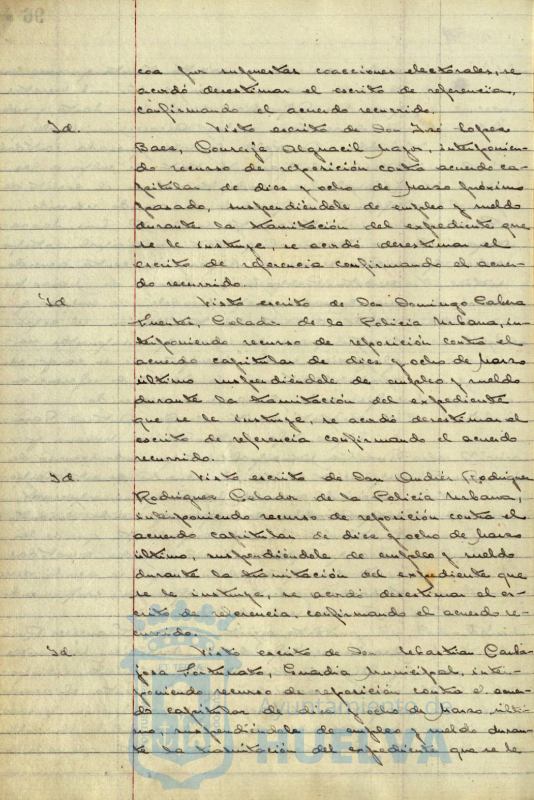 coa por supuestas coacciones electorales, se
acordó desestimar el escrito de referencia,
confirmando el acuerdo recurrido.
Id. Visto escrito de Don José Lopez
Baez, Conserje Alguacil Mayor, interponien-
do recurso de reposición contra acuerdo ca-
pitular de diez y ocho de Marzo próximo
pasado, suspendiéndole de empleo y sueldo
durante la tramitación del expediente que
se le instruye, se acordó desestimar el
escrito de referencia confirmando el acuer-
do recurrido.
Id. Visto escrito de Don Domingo Cabera
Fuentes, Celador de la Policía Urbana, in-
terponiendo recurso de reposición contra el
acuerdo capitular de diez y ocho de Marzo
último suspendiéndole de empleo y sueldo
durante la tramitación del expediente
que se le instruye, se acordó desestimar el
escrito de referencia confirmando el acuerdo
recurrido.
Id. Visto escrito de Don Andrés Rodriguez
Rodriguez Celador de la Policía Urbana,
interponiendo recurso de reposición contra el
acuerdo capitular de diez y ocho de Marzo
último, suspendiéndole de empleo y sueldo
durante la tramitación del expediente que
se le instruye, se acordó desestimar el es-
crito de referencia, confirmando el acuerdo re-
currido.
Id. Visto escrito de Don Sebastian Carba-
josa Fortunato, Guardia Municipal, inter-
poniendo recurso de reposición contra el acuer-
do capitular de diez y ocho de Marzo últi-
mo, suspendiéndole de empleo y sueldo duran-
te la tramitación del expediente que se le
Ayuntamiento de
HUELVA